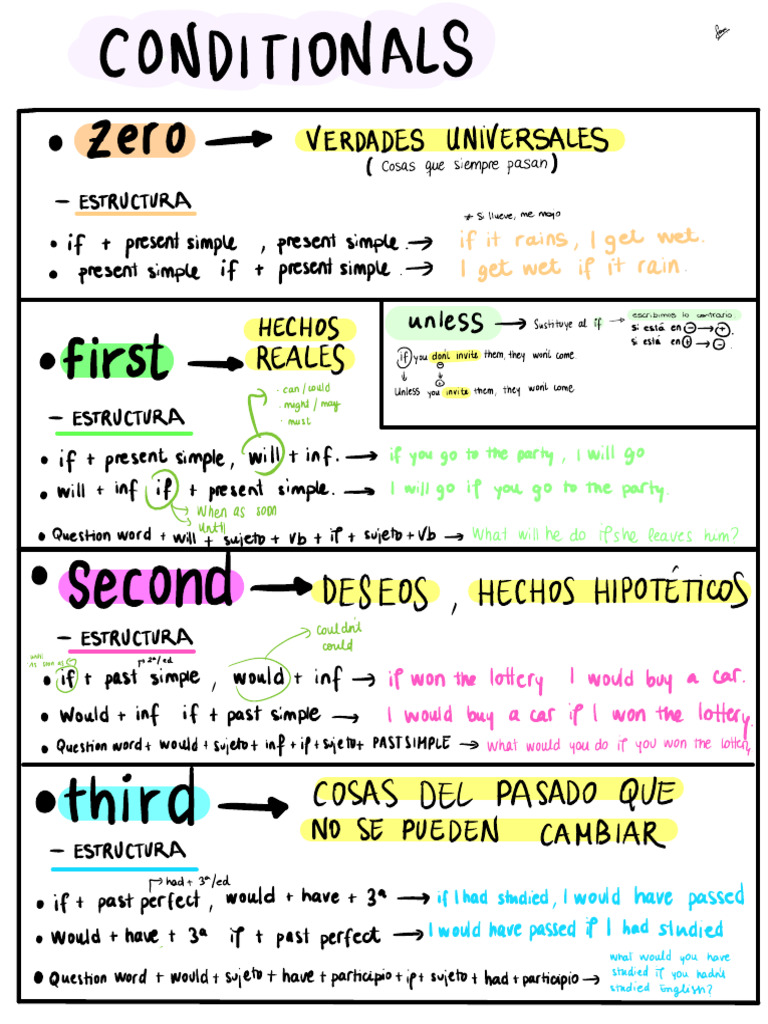 CONDITIONALS
• zero → VERDADES UNIVERSALES
(Cosas que siempre pasan)
– ESTRUCTURA
* Si llueve, me mojo
• if + present simple , present simple. → if it rains, I get wet.
• present simple if + present simple. → I get wet if it rain.
• first → HECHOS REALES
– ESTRUCTURA
· can/could
· might/may
· must
• if + present simple, will + inf. → if you go to the party, I will go
• will + inf if + present simple. → I will go if you go to the party.
When as soon
until
• Question word + will + sujeto + vb + if + sujeto + vb → What will he do if she leaves him?
unless → Sustituye al if → escribimos lo contrario
si está en - → +.
si está en + → -.
if you don't invite them, they won't come.
- 
Unless you invite them, they won't come
• second → DESEOS, HECHOS HIPOTÉTICOS
– ESTRUCTURA
couldn't
could
until
as soon as
2ª/ed
• if + past simple, would + inf → if won the lottery I would buy a car.
• Would + inf if + past simple → I would buy a car if I won the lottery.
• Question word + would + sujeto + inf + if + sujeto + PAST SIMPLE → what would you do if you won the lottery
• third → COSAS DEL PASADO QUE
NO SE PUEDEN CAMBIAR
– ESTRUCTURA
had + 3ª/ed
• if + past perfect, would + have + 3ª → if I had studied, I would have passed
• Would + have + 3ª if + past perfect → I would have passed if I had studied
• Question word + would + sujeto + have + participio + if + sujeto + had + participio → what would you have
studied if you hadn't
studied English?